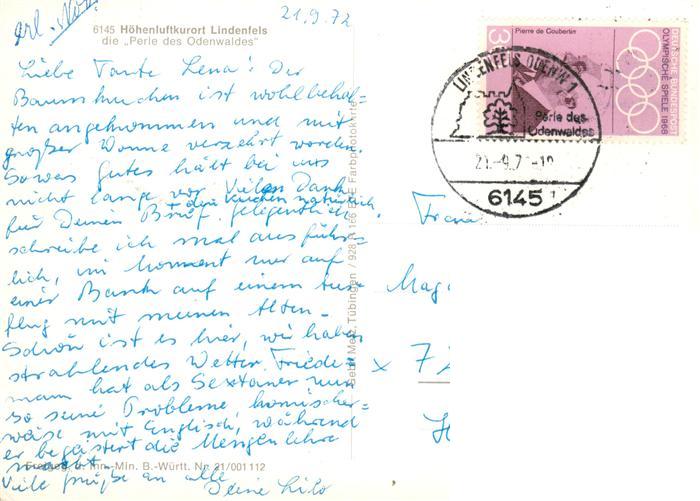 21.9.72
erl.
6145 Höhenluftkurort Lindenfels
die „Perle des Odenwaldes"
Liebe Tante Lena! Der
Baumkuchen ist wohlbehal=
ten angekommen und mit
großer Wonne verzehrt worden.
Sowas gutes hält bei uns
nicht lange vor. Vielen Dank
+ den Kuchen natürlich
für Deinen Brief. gelegentlich
schreibe ich mal ausführ=
lich, im Moment nur auf
einer Bank auf einem Aus=
flug mit meinen Alten-
Schön ist es hier, wir haben
strahlendes Wetter. Friede=
mann hat als Sextaner nun
so seine Probleme, komischer=
weise mit Englisch, während
er begeistert die Mengenlehre
macht.
Viele Grüße an alle
Deine Lilo
Freigeg. d. Inn.-Min. B.-Württ. Nr. 21/001112
Gebr. Metz, Tübingen
Farbphotokarte
Pierre de Coubertin
DEUTSCHE BUNDESPOST
OLYMPISCHE SPIELE 1968
LINDENFELS ODENW 1
Perle des
Odenwaldes
21.-9.7 -10
6145
Frau
Mag
x 7